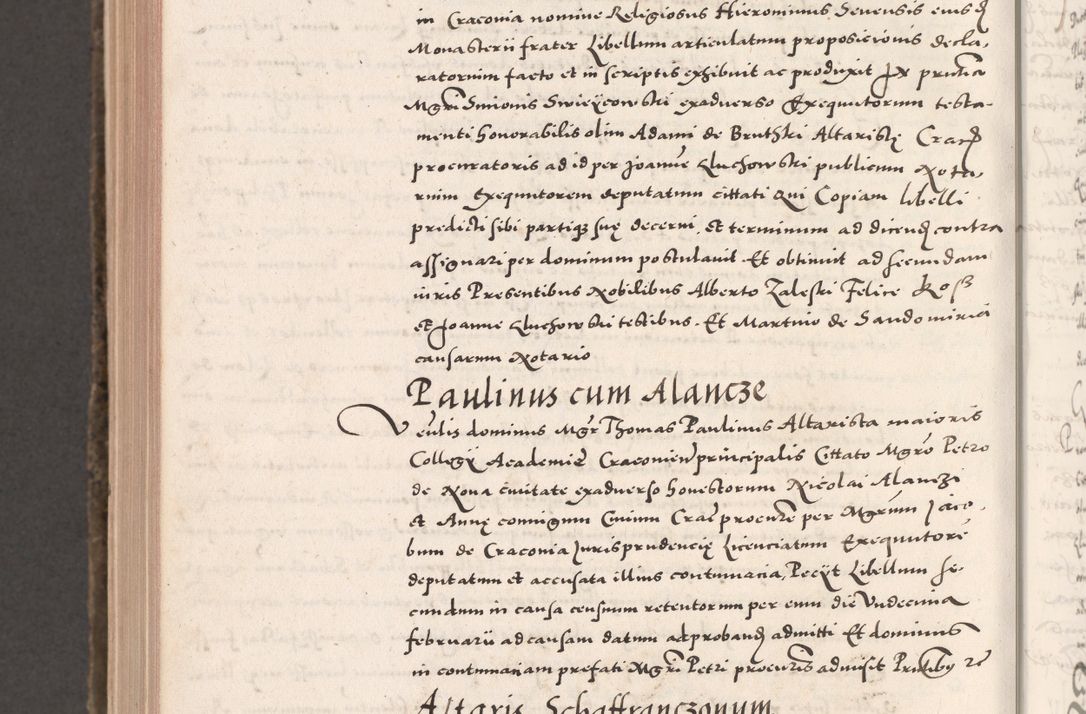 in Craconia nomine Religiosus Hieronimus Senensis eiusd
Monasterii frater Libellum articulatum proposicionis decla,
ratorium facto et in scriptis exhibuit ac produxit In pruntia
Mgri Simonis Swieycowski exadverso Exequutorum testa-
menti honorabilis olim Adami de Bruthski Altariste Crac
procuratoris ad id per Joanne Luchowski publicum Nota,
rium Exequutorem deputatum cittati Qui Copiam libelli
predicti sibi partiq3 sue decerni, et terminum ad dicend contra
assignari per dominum postulavit Et obtinuit ad secundam
iuris Presentibus Nobilibus Alberto Zaleski Felice Ross
et Joanne Luchowski testibus. Et Martino de Sandomiria
causarum Notario
Paulinus cum Alancze
Venlis dominus Mgr Thomas Paulinus Altarista maioris
Collegii Academie Cracovien principalis Cittato Mgro Petro
de Nova civitate exadverso honestorum Nicolai Alanczi
et Anne coniugum Civium Crac procure per Mgrum Jaco,
bum de Craconia Jurisprudencie Licenciatum Exequutore
deputatum et accusata illius contumacia, Fecyt Libellum se-
cundum in causa censuum retentorum per eum die Undecima
februarii ad causam datum ad proband admitti Et dominus
in contumaciam prefati Mgri Petri procuris admisit Pntibus rc
Altaris Schaffranczonum